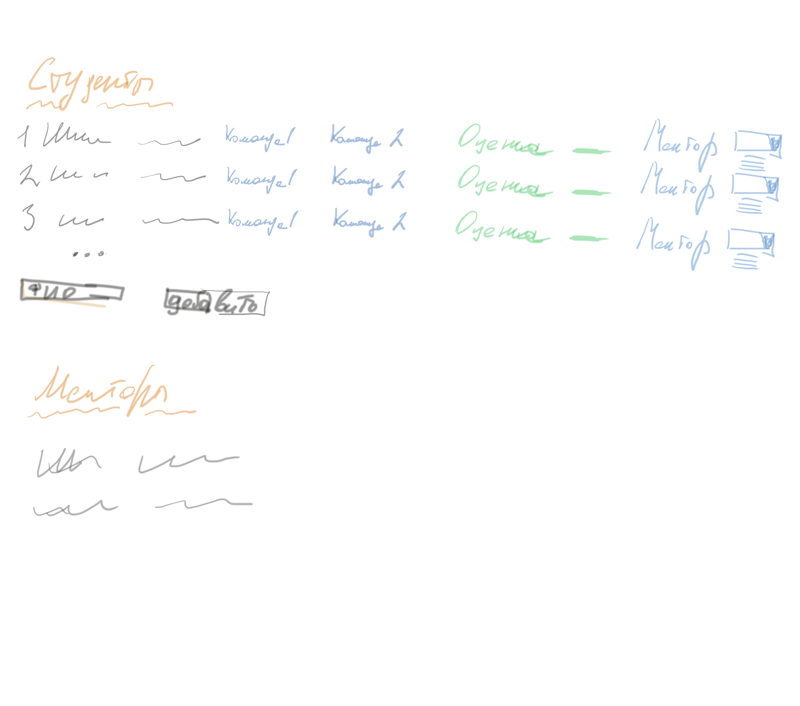 Студенты
1 Команда 1 Команда 2 Оценка Ментор
2 Команда 1 Команда 2 Оценка Ментор
3 Команда 1 Команда 2 Оценка Ментор
...
ФИО добавить
Менторы